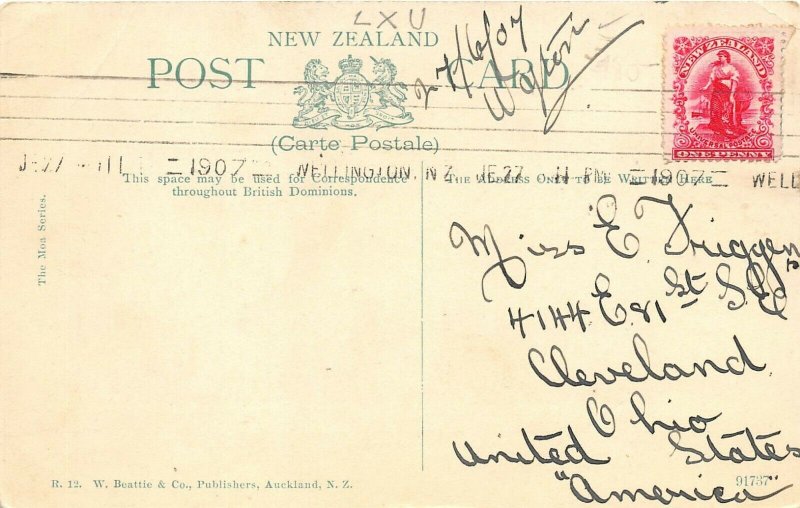 LXU
NEW ZEALAND
POST CARD
27/6/07
(Carte Postale)
NEW ZEALAND
UNIVERSAL POSTAGE
ONE PENNY
1907 WELLINGTON. N Z. JE 27 11 PM 1907 WELL
This space may be used for Correspondence
throughout British Dominions.
THE ADDRESS ONLY TO BE WRITTEN HERE
The Moa Series.
Miss E. Friggens
4144 E. 81st St. S.E
Cleveland
Ohio
United States
"America"
R. 12. W. Beattie & Co., Publishers, Auckland, N. Z.
91737